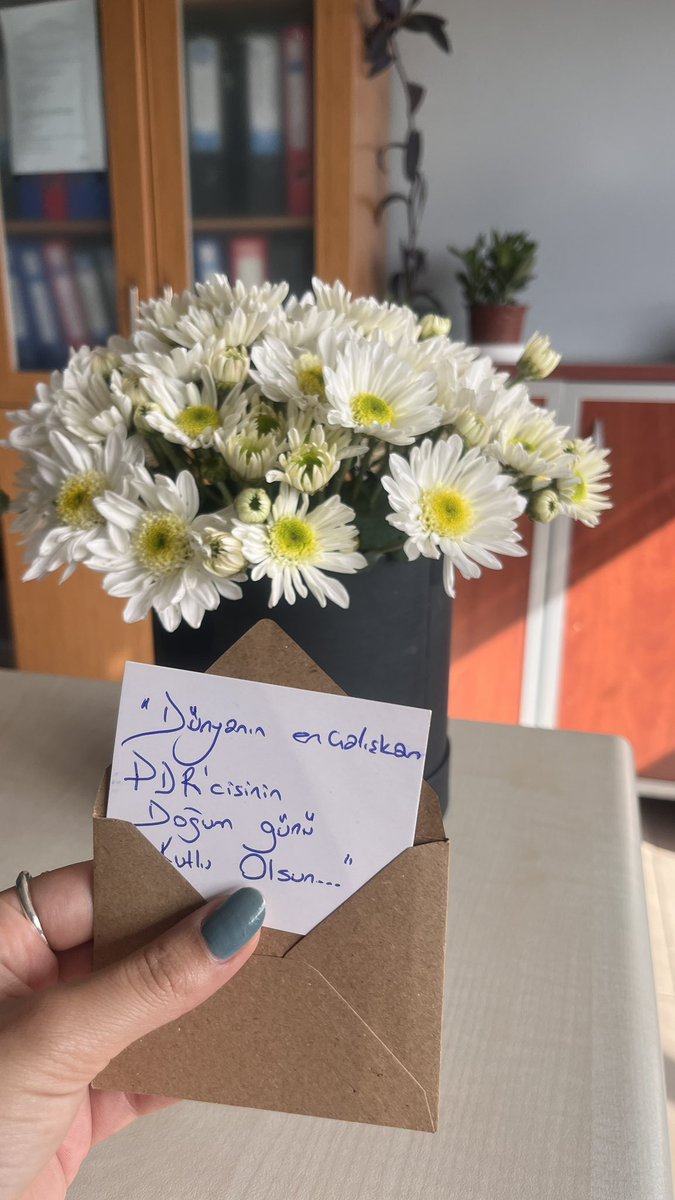 "Dünyanın en çalışkan
PDR'cisinin
Doğum günü
Kutlu Olsun..."